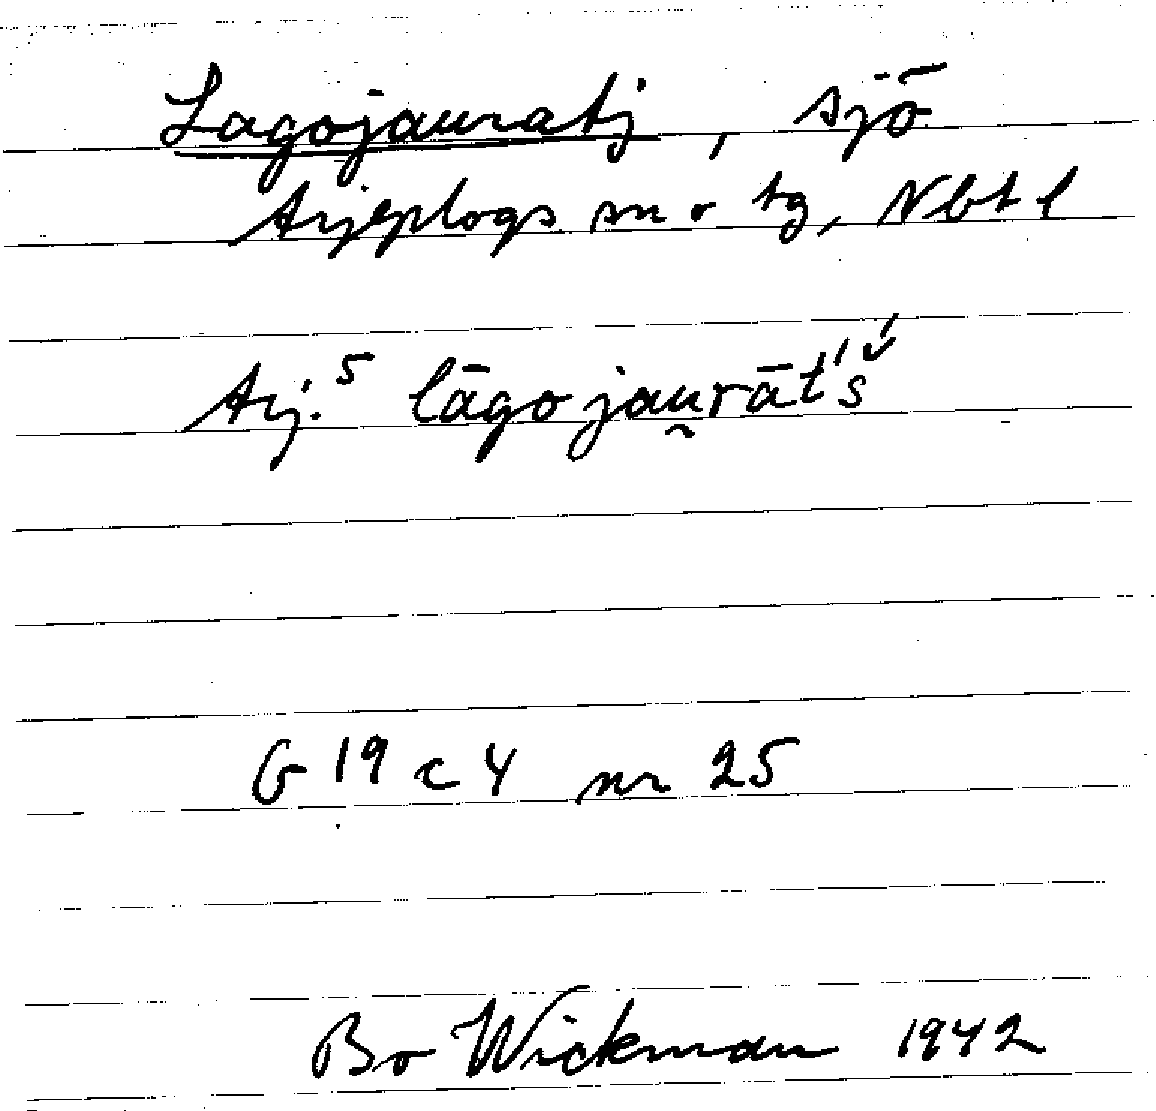 Lagojauratj, sjö
Arjeplogs sn o tg, Nbt l
Arj.⁵ lāgojau̯rāt́š́
G 19 c 4 nr 25
Bo Wickman 1942